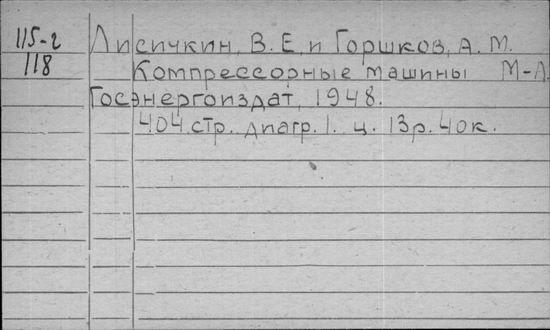 115-г Лисичкин, В. Е. и Горшков, А. М.
118 Компрессорные машины М-Л.
Госэнергоиздат, 1948.
404 стр. диагр. 1. ц. 13р. 40к.